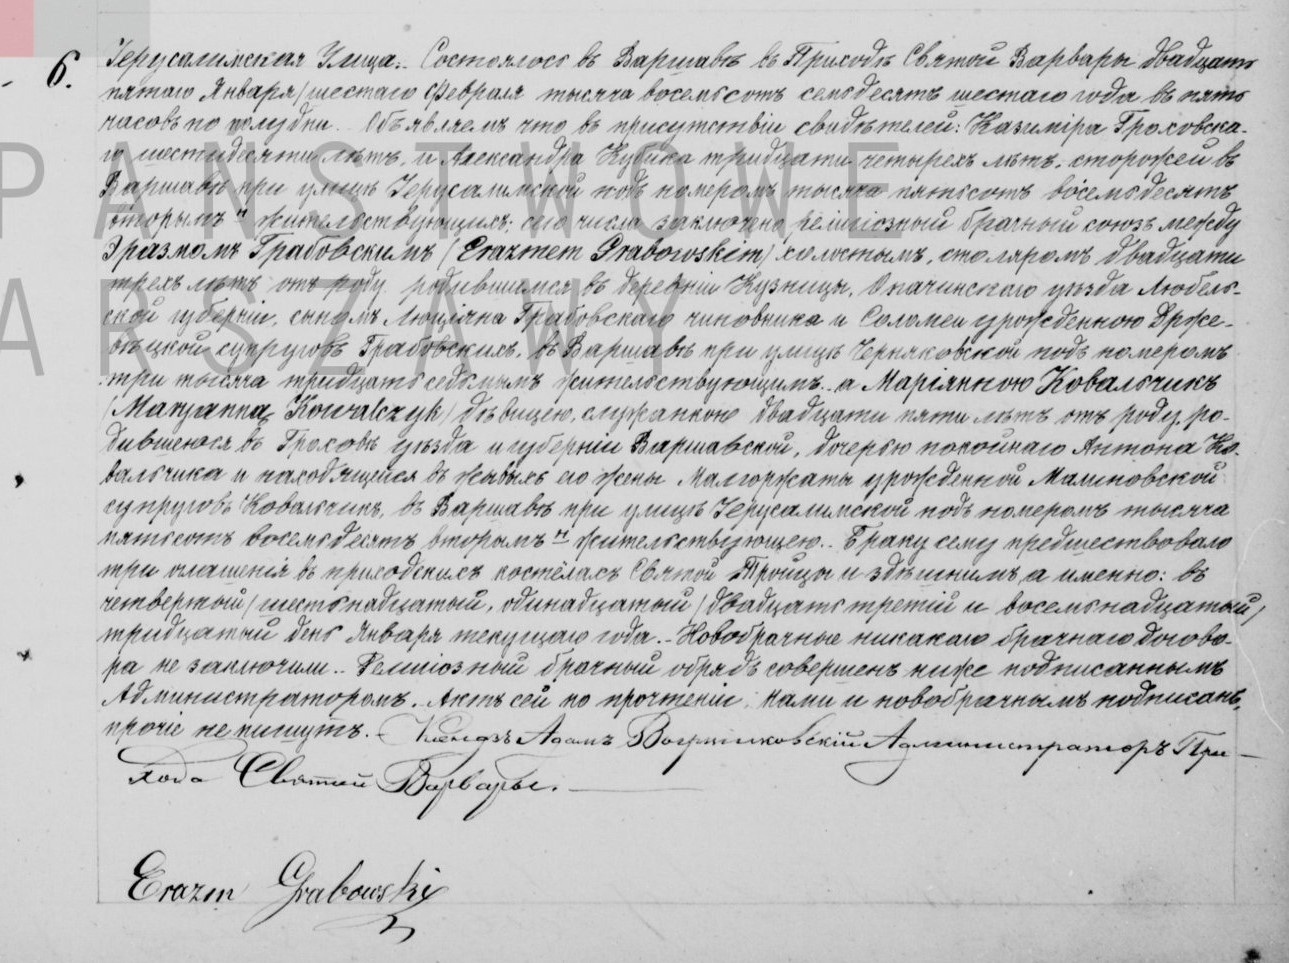 6.
Іерусалимская Улица. Состоялось въ Варшавѣ въ Приходѣ Святой Варвары двадцать
пятаго Января/шестаго Февраля тысяча восемьсотъ семьдесятъ шестаго года въ пять
часовъ по полудни. Объявляемъ что въ присутствіи свидѣтелей: Казиміра Гроховска-
го шестидесяти лѣтъ, и Александра Кубика тридцати четырехъ лѣтъ, сторожей въ
Варшавѣ при улицѣ Іерусалимской подъ номеромъ тысяча пятьсотъ восемьдесятъ
вторымъ н жительствующихъ; сего числа заключено религіозный брачный союзъ между
Эразмомъ Грабовскимъ (Erazmem Grabowskim) холостымъ, столяромъ двадцати
трехъ лѣтъ отъ роду родившемся въ деревнѣ Кузницы, Опочинскаго уѣзда Любель-
ской губерніи, сыномъ Грабовскаго чиновника и Соломеи урожденною Држе-
вѣцкой супруговъ Грабовскихъ, въ Варшавѣ при улицѣ Черняковской подъ номеромъ
три тысяча тридцать седьмымъ жительствующимъ, а Маріянною Ковальчикъ
(Maryanną Kowalczyk) дѣвицею, служанкою двадцати пяти лѣтъ отъ роду, ро-
дившеюся въ Гроховѣ уѣзда и губерніи Варшавской, дочерью покойнаго Антона Ко-
вальчика и находящейся въ живыхъ его жены Малгоржаты урожденной Малиновской
супруговъ Ковальчикъ, въ Варшавѣ при улицѣ Іерусалимской подъ номеромъ тысяча
пятьсотъ восемьдесятъ вторымъ н жительствующею. Браку сему предшествовало
три оглашенія въ приходскихъ костёлахъ Святой Тройцы и здѣшнимъ, а именно: въ
четвертый/шестьнадцатый, одинадцатый/двадцать третій и восемьнадцатый/
тридцатый день Января текущаго года. Новобрачные никакого брачнаго догово-
ра не заключили. Религіозный брачный обрядъ совершенъ ниже подписаннымъ
Администраторомъ. Актъ сей по прочтеніи, нами и новобрачнымъ подписанъ,
прочіе не пишутъ. Ксендзъ Адамъ Администраторъ При-
хода Святой Варвары.
Erazm Grabowski
PAŃSTWOWE
ARSZAWY